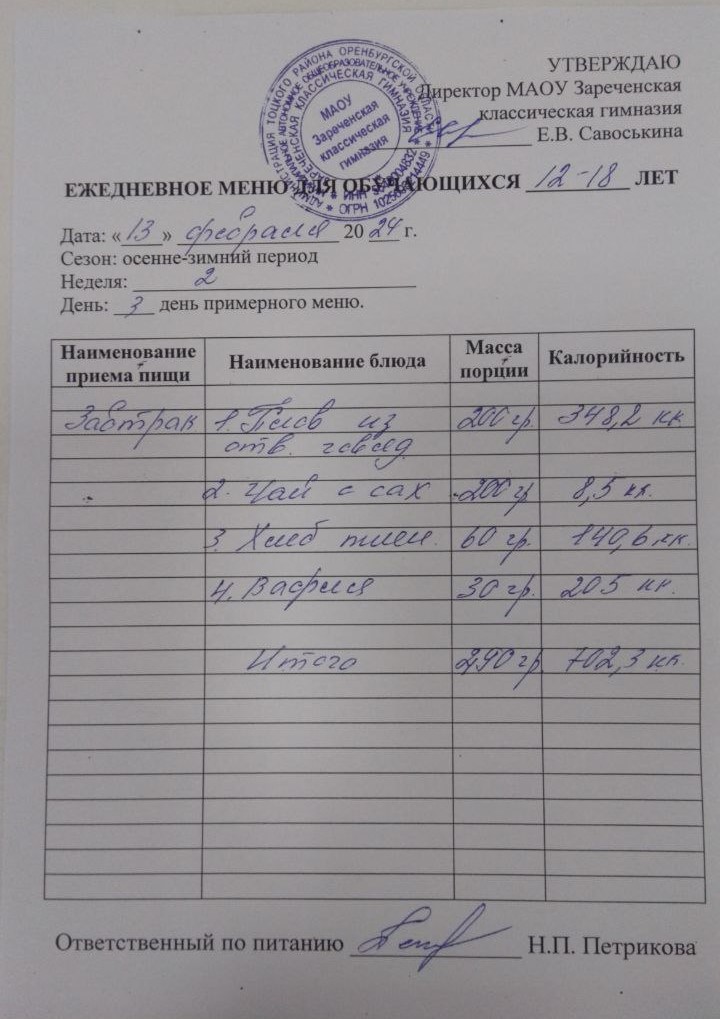 УТВЕРЖДАЮ
Директор МАОУ Зареченская
классическая гимназия
Е.В. Савоськина
МАОУ
Зареченская
классическая
гимназия
ЕЖЕДНЕВНОЕ МЕНЮ ДЛЯ ОБУЧАЮЩИХСЯ 12-18 ЛЕТ
Дата: «13» февраля 2024 г.
Сезон: осенне-зимний период
Неделя: 2
День: 3 день примерного меню.
Наименование приема пищи Наименование блюда Масса порции Калорийность
Завтрак 1. Плов из 200 гр. 348,2 кк
отв. говяд.
2. Чай с сах 200 гр 8,5 кк.
3. Хлеб пшен. 60 гр. 140,6 кк.
4. Вафля 30 гр. 205 кк.
Итого 490 гр. 702,3 кк.
Ответственный по питанию Н.П. Петрикова